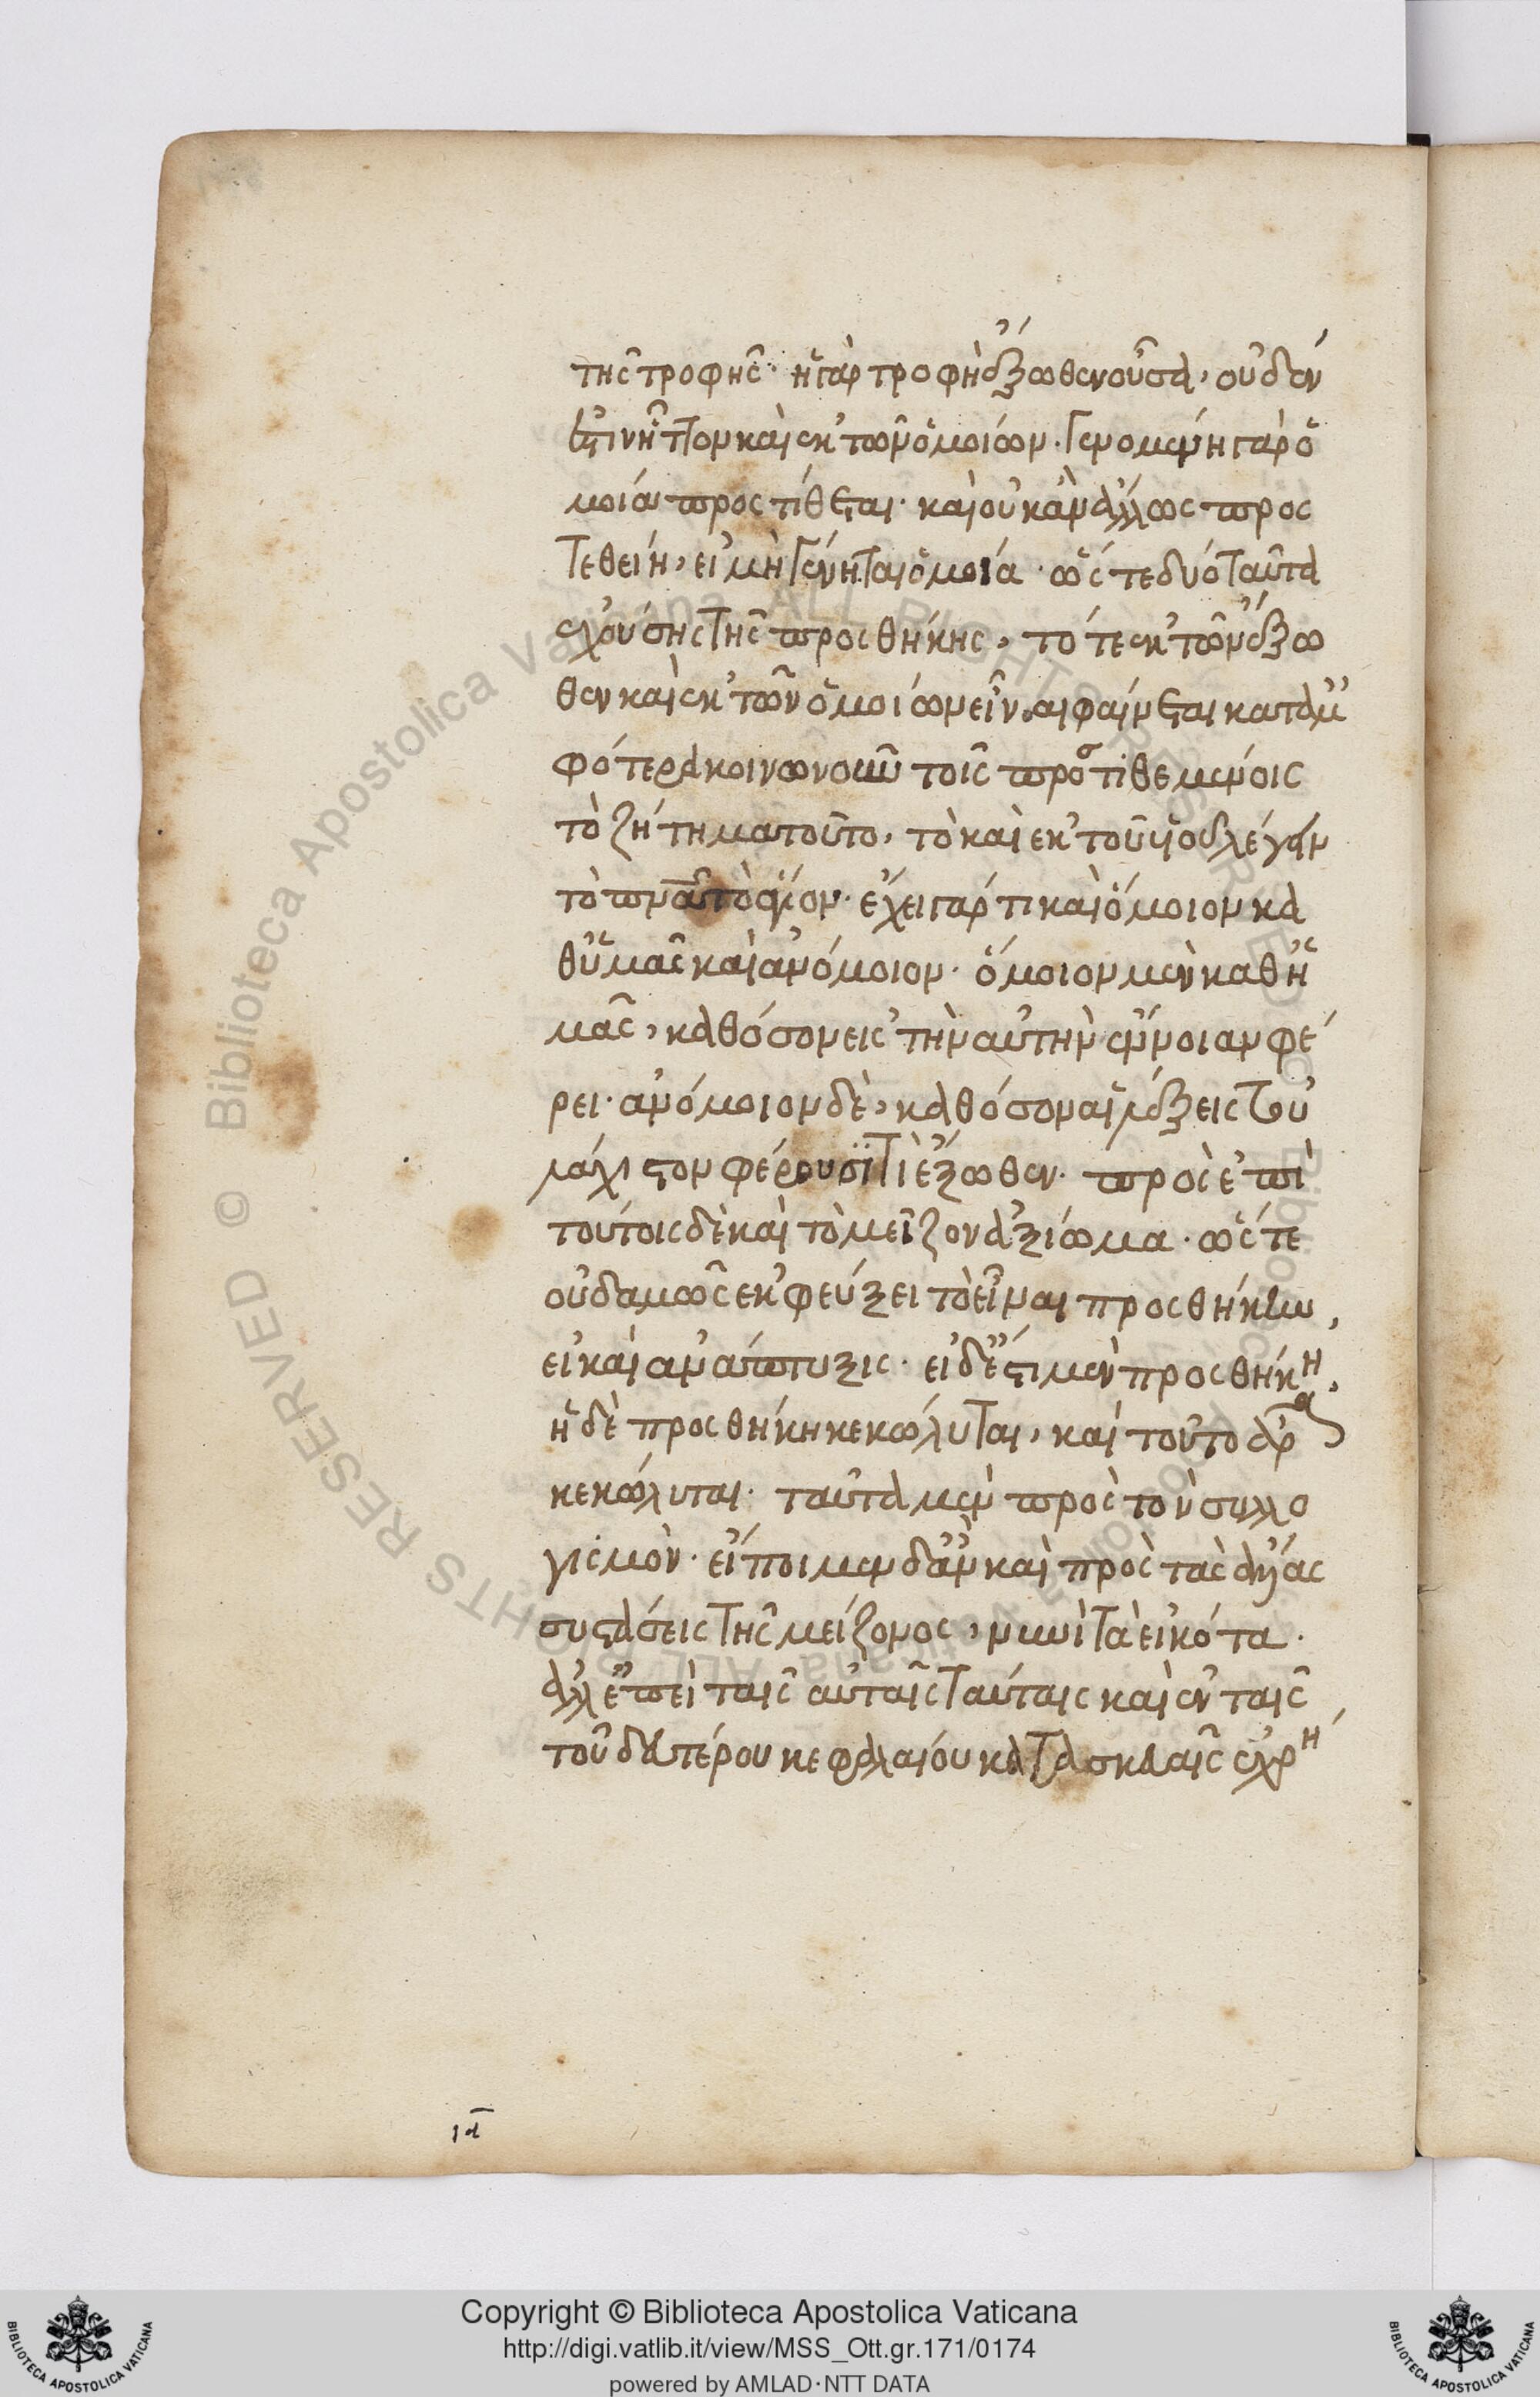 τῆς τροφῆς· ἡ γὰρ τροφὴ ἔξωθεν οὖσα, οὐδὲν
ἔστιν ἧττον καὶ ἐκ τῶν ὁμοίων. γενομένη γὰρ ὁ
μοία προστίθεται· καὶ οὐκ ἂν ἄλλως προς
τεθείη, εἰ μὴ γένηται ὁμοία· ὥστε δύο ταῦτα
ἐχούσης τῆς προσθήκης, τό τε ἐκ τῶν ἔξω
θεν καὶ ἐκ τῶν ὁμοίων εἶναι φαίνεται κατ' ἀμ
φότερα κοινωνοῦν τοῖς προστιθεμένοις
τὸ ζήτημα τοῦτο, τὸ καὶ ἐκ τοῦ υἱοῦ λέγειν
τὸ πνεῦμα τὸ ἅγιον· ἔχει γάρ τι καὶ ὅμοιον κα
θ' ὑμᾶς καὶ ἀνόμοιον· ὅμοιον μὲν καθ' ἡ
μᾶς, καθόσον εἰς τὴν αὐτὴν ἔννοιαν φέ
ρει· ἀνόμοιον δὲ, καθόσον αἱ λέξεις τοὐ
λάχιστον φέρουσί τι ἔξωθεν· πρὸς ἐπὶ
τούτοις δὲ καὶ τὸ μεῖζον ἀξίωμα· ὥστε
οὐδαμῶς ἐκφεύξει τὸ εἶναι προσθήκην,
εἰ καὶ ἀνάπτυξις· εἰ δ' ἔστι μὲν προσθήκη,
ἡ δὲ προσθήκη κεκώλυται, καὶ τοῦτο ἄρα
κεκώλυται· ταῦτα μὲν πρὸς τὸν συλλο
γισμόν· εἴποιμεν δ' ἂν καὶ πρὸς τὰς ἄλλας
συστάσεις τῆς μείζονος, νυνὶ τὰ εἰκότα·
ἀλλ' ἐπεὶ ταῖς αὐταῖς ταύταις καὶ ἐν ταῖς
τοῦ δευτέρου κεφαλαίου κατασκευαῖς ἐχρή
ιδ
Copyright © Biblioteca Apostolica Vaticana
http://digi.vatlib.it/view/MSS_Ott.gr.171/0174
powered by AMLAD·NTT DATA